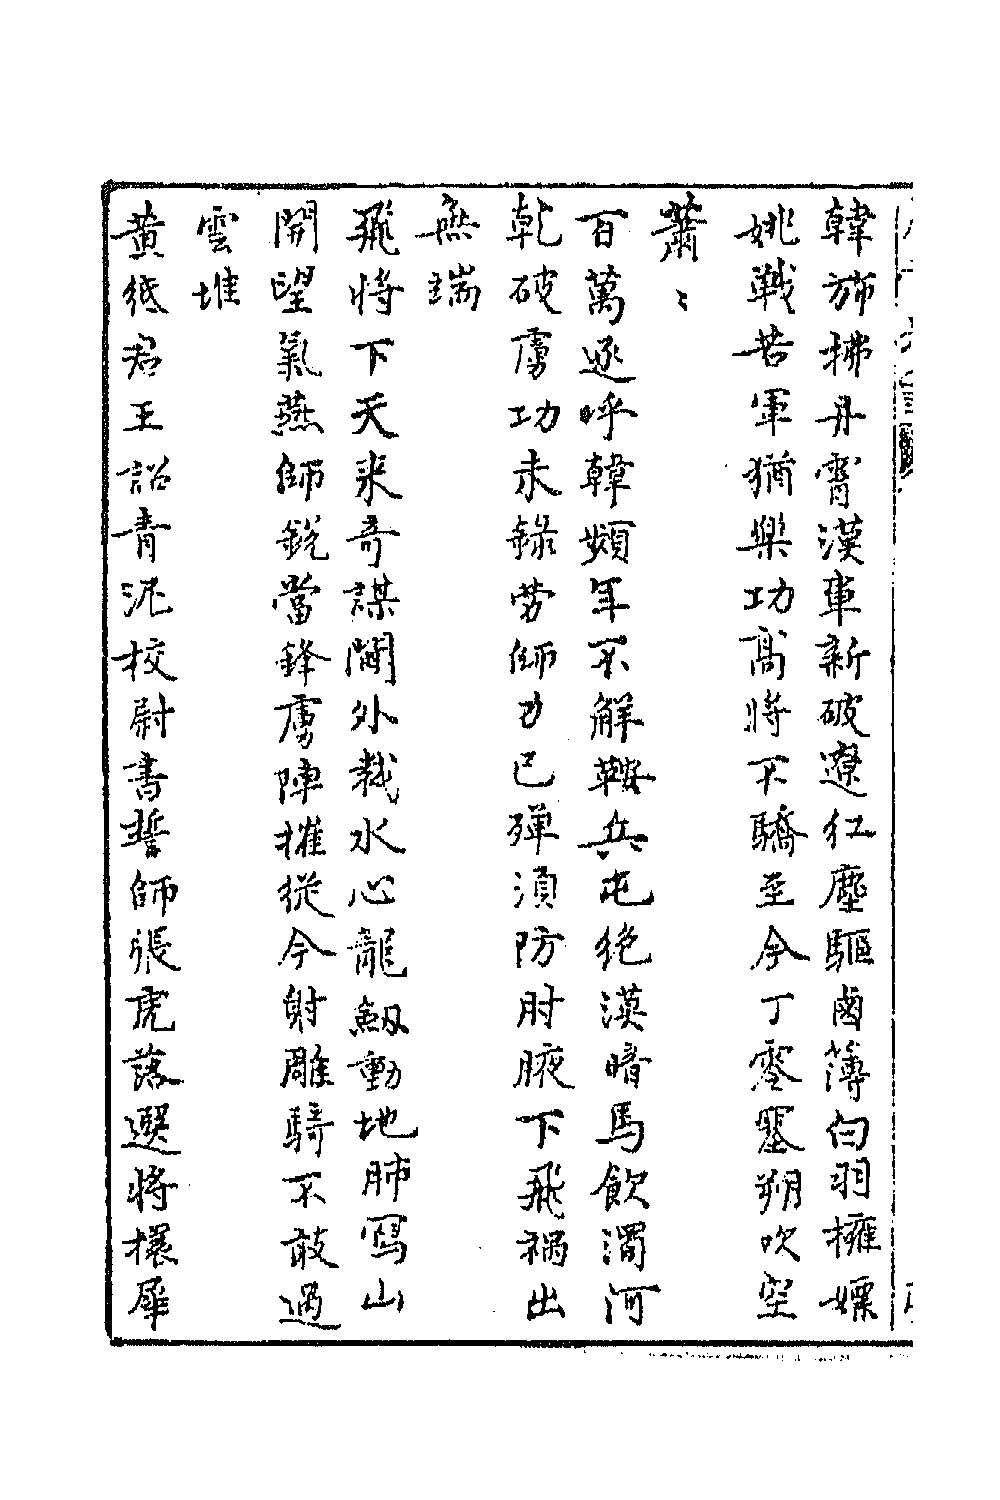 韓旆拂丹霄漢車新破遼紅塵驅鹵簿白羽擁嫖
姚戰苦軍猶樂功高將不驕至今丁零塞朔吹空
蕭〻
百萬逐呼韓頻年不解鞍兵屯絶漠暗馬飲濁河
乾破虜功未錄勞師力已殫湏防肘腋下飛禍出
無端
飛將下天來竒謀閫外裁水心龍劒動地肺寫山
開望氣燕師銳當鋒虜陣摧從今射雕騎不敢過
雲堆
黃紙君王詔青泥校尉書誓師張虎落選將擐犀